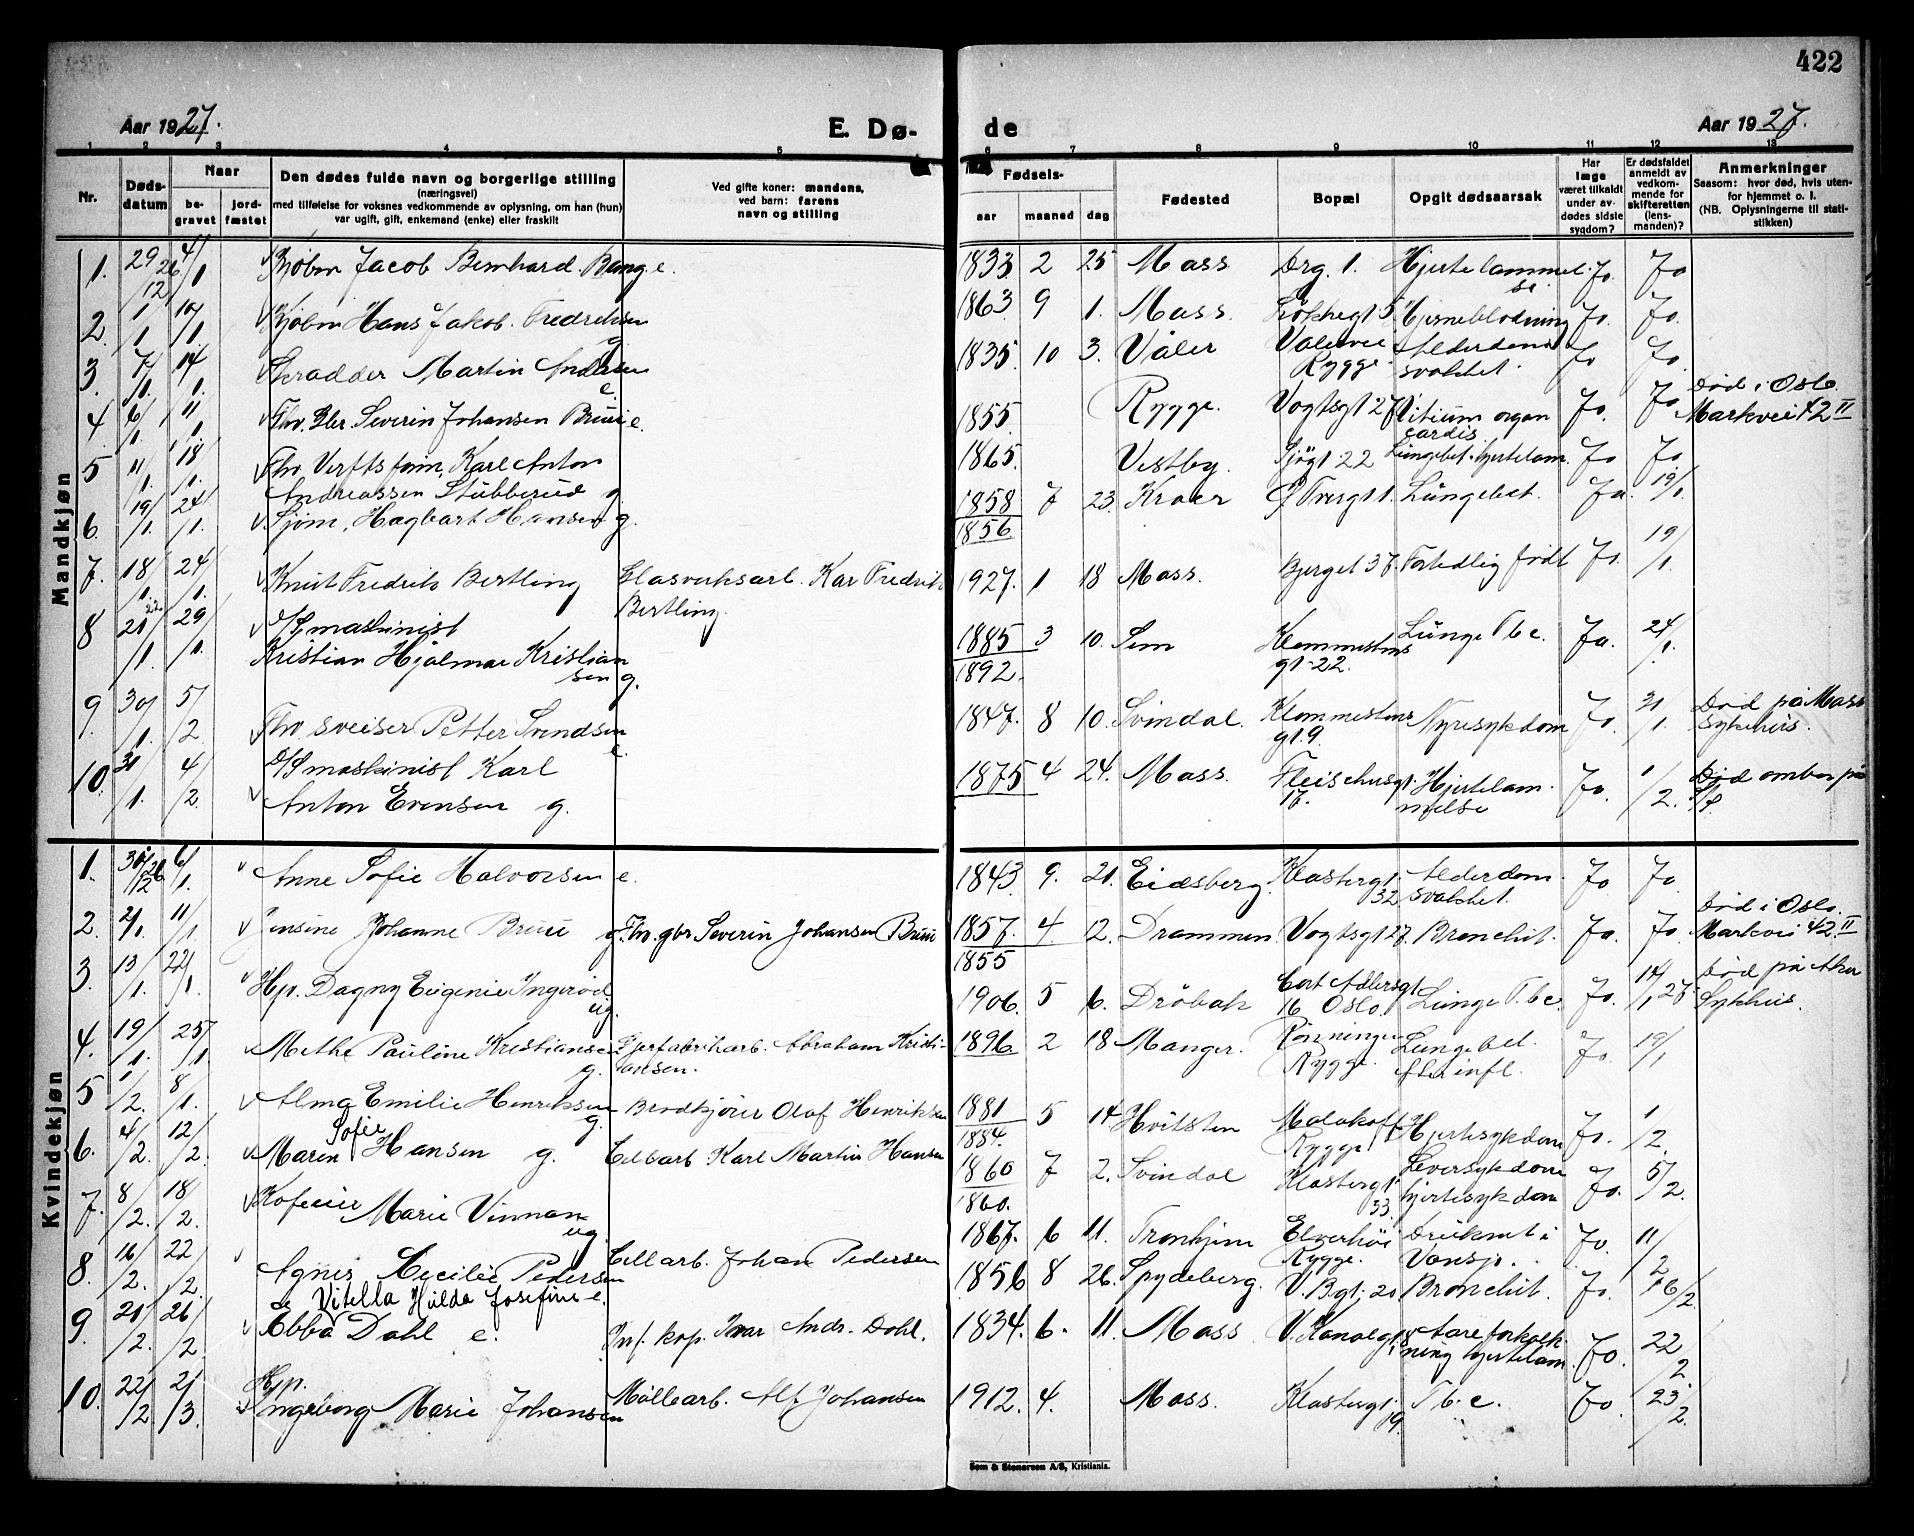 422
Aar 1927.
E. Dø-
de
Aar 1927.
1 2 3 4 5 6 7 8 9 10 11 12 13
Nr.
Døds-
datum
Naar
be-
gravet
jord-
fæstet
Den dødes fulde navn og borgerlige stilling
(næringsvei)
med tilføielse for voksnes vedkommende av oplysning, om han (hun)
var ugift, gift, enkemand (enke) eller fraskilt
Ved gifte koner: mandens,
ved barn: farens
navn og stilling
Fødsels-
aar maaned dag
Fødested
Bopæl
Opgit dødsaarsak
Har
læge
været tilkaldt
under av-
dødes sidste
sygdom?
Er dødsfaldet
anmeldt av
vedkom-
mende for
skifteretten
(lens-
manden)?
Anmerkninger
Saasom: hvor død, hvis uten-
for hjemmet o. l.
(NB. Oplysningerne til stati-
stikken)
Mandkjøn
1. 29/12 26 4/1 Kjøbm Jacob Bernhard Bang e. 1833 2 25 Moss Drg. 1. Hjertelammel-
se. Ja. Ja
2. 1/1. 10/1. Kjøbm Hans Jakob Fredriksen
g. 1863 9 1. Moss. Hjerneblødning Ja. Ja.
3. 7/1. 14/1. Skrædder Martin Andersen
e. 1835 10 3. Våler Rygge. Alderdoms
svakhet. Ja Ja.
4. 6/1. 11/1. Fhv. Gbr. Severin Johansen Bruu e. 1855. Rygge. Vogtsgt 27 Vitium organ
cardis. Ja. Ja. Død i Oslo.
Markvei 42 II
5. 11/1. 18/1. Fhv. Verftsform. Karl Anton
Andreassen Stubberud g. 1865. Vestby. Sjøgt. 22 Lungebet. hjertelam. Ja Ja.
6. 19/1. 24/1. Sjøm. Hagbart Hansen g. 1858
1856. 7 23. Kroer Ø. Tvergt 1. Lungebet. Ja. 19/1.
7. 18/1. 24/1. Knut Fredrik Bertling Glasverksarb. Kar Fredrik
Bertling. 1927. 1 18 Moss. Bjerget 37 For tidlig født Ja. 19/1.
8 21/1. 22 29/1. D/S maskinist
Kristian Hjalmar Kristian
sen g. 1885
1892. 3 10. Sem Klommestens
gt-22. Lunge Tbc. Ja. 24/1.
9 30/1. 5/2 Fhv sveiser Petter Svendsen
e. 1847. 8 10. Svindal. Klommestens
gt. 9. Nyresykdom Ja. 31/1. Død på Moss
sykehus.
10. 31/1. 4/2 D/S maskinist Karl
Anton Evensen g. 1875 4 24. Moss. Fleischersgt.
17. Hjertelam-
melse Ja. 1/2. Død ombord på
S/S
Kvindekjøn
1. 30/12 26 6/1. Anne Sofie Halvorsen e. 1843 9. 21. Eidsberg. Klostergt.
32 Alderdom-
svakhet. Ja Ja.
2. 2/1. 11/1. Jensine Johanne Bruu g. Fhv. gbr Severin Johansen Bruu 1857.
1855 4. 2. Drammen. Vogtsgt 27. Bronchit. Ja. Ja Død i Oslo.
Markvei 42 II
3. 13/1. 22/1. Hp. Dagny Eugenie Ingerød
ug. 1906. 5 6. Drøbak Cort Adlersgt
16 Oslo. Lunge Tbc. Ja. 14/1 27 Død på Aker
Sykhus.
4. 19/1. 25/1 Methe Pauline Kristiansen
g. Gjærfabrikarb. Abraham Kristi-
ansen. 1896 2 18 Manger. Rønningen
Rygge. Lungebet.
efter infl. Ja. 19/1
5 1/2. 8/1. Alma Emilie Henriksen
g. Brødkjører Olaf Henriksen 1881
1884. 5 14 Hvitsten Malakoff
Rygge Hjertesykdom Ja. 1/2.
6. 4/2. 12/2. Maren Sofie Hansen g. Cellarb Karl Martin Hansen 1860
1860. 7 2. Svindal Klostergt
33 Leversykdom
hjertesykdom Ja. 5/2.
7. 8/2. 18/2. Marie Vinnan
ug. 1867. 6 11. Tronhjem Elverhøi
Rygge. Druknet i
Vansjø. Ja. 11/2
8. 16/2. 22/2. Agnes Cecilie Pedersen
e. Cellarb. Johan Pedersen 1856 8 26. Spydeberg. V. Bgt. 20 Bronchit. Ja. 16/2.
9. 21/2. 26/2 Vitella Hulda Josefine
Ebba Dahl e. Inf. kap. Ivar Andr. Dahl. 1834. 6. 11. Moss V. Kanalgt. Aareforkalk-
ning hjertelam. Ja. 22/2.
10. 22/2 2/3. Hp.
Ingeborg Marie Johansen Møllearb. Alf Johansen 1912. 4. Moss. Klostergt.
19. Tbc. Ja. 23/2.
Sem & Stenersen A/S, Kristiania.